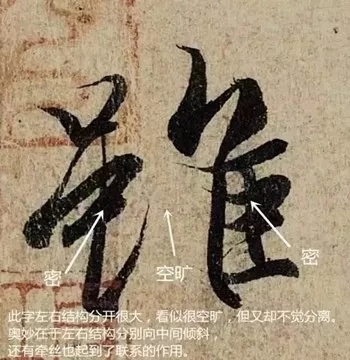 雖
密
空旷
密
此字左右结构分开很大，看似很空旷，但又却不觉分离。
奥妙在于左右结构分别向中间倾斜，
还有牵丝也起到了联系的作用。